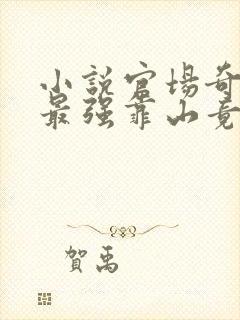 小説官場奇
最强靠山竟
賀禹